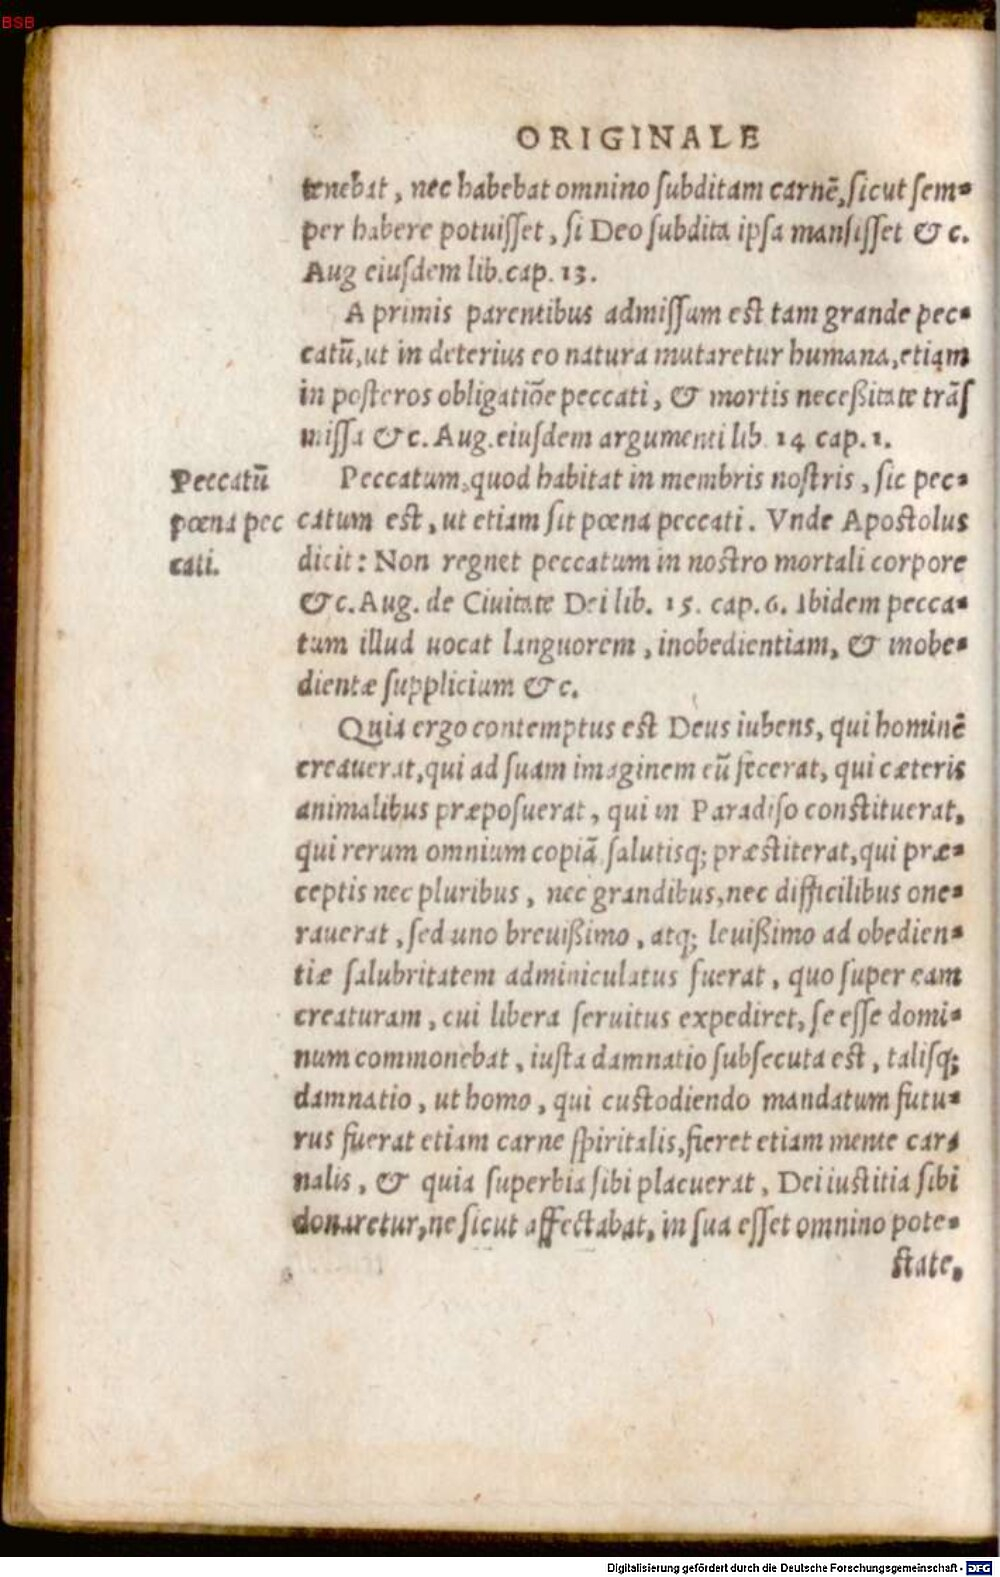 BSB
ORIGINALE
tenebat, nec habebat omnino ſubditam carnē, ſicut ſem-
per habere potuiſſet, ſi Deo ſubdita ipſa manſiſſet & c.
Aug eiuſdem lib. cap. 13.
A primis parentibus admiſſum est tam grande pec-
catū, ut in deterius eo natura mutaretur humana, etiam
in poſteros obligatiōe peccati, & mortis neceßitate trāſ
miſſa & c. Aug. eiuſdem argumenti lib. 14 cap. 1.
Peccatū
pœna pec
cati.
Peccatum, quod habitat in membris noſtris, ſic pec-
catum est, ut etiam ſit pœna peccati. Vnde Apostolus
dicit: Non regnet peccatum in nostro mortali corpore
& c. Aug. de Ciuitate Dei lib. 15. cap. 6. Ibidem pecca-
tum illud uocat languorem, inobedientiam, & inobe-
dientæ ſupplicium & c.
Quia ergo contemptus est Deus iubens, qui hominē
creauerat, qui ad ſuam imaginem eū fecerat, qui cæteris
animalibus præpoſuerat, qui in Paradiſo constituerat,
qui rerum omnium copiā ſalutisq; præstiterat, qui præ-
ceptis nec pluribus, nec grandibus, nec difficilibus one-
rauerat, ſed uno breuißimo, atq; leuißimo ad obedien-
tiæ ſalubritatem adminiculatus fuerat, quo ſuper eam
creaturam, cui libera ſeruitus expediret, ſe eſſe domi-
num commonebat, iusta damnatio ſubſecuta est, taliſq;
damnatio, ut homo, qui custodiendo mandatum futu-
rus fuerat etiam carne ſpiritalis, fieret etiam mente car-
nalis, & quia ſuperbia ſibi placuerat, Dei iustitia ſibi
donaretur, ne ſicut affectabat, in ſua eſſet omnino pote-
state,
Digitalisierung gefördert durch die Deutsche Forschungsgemeinschaft - DFG